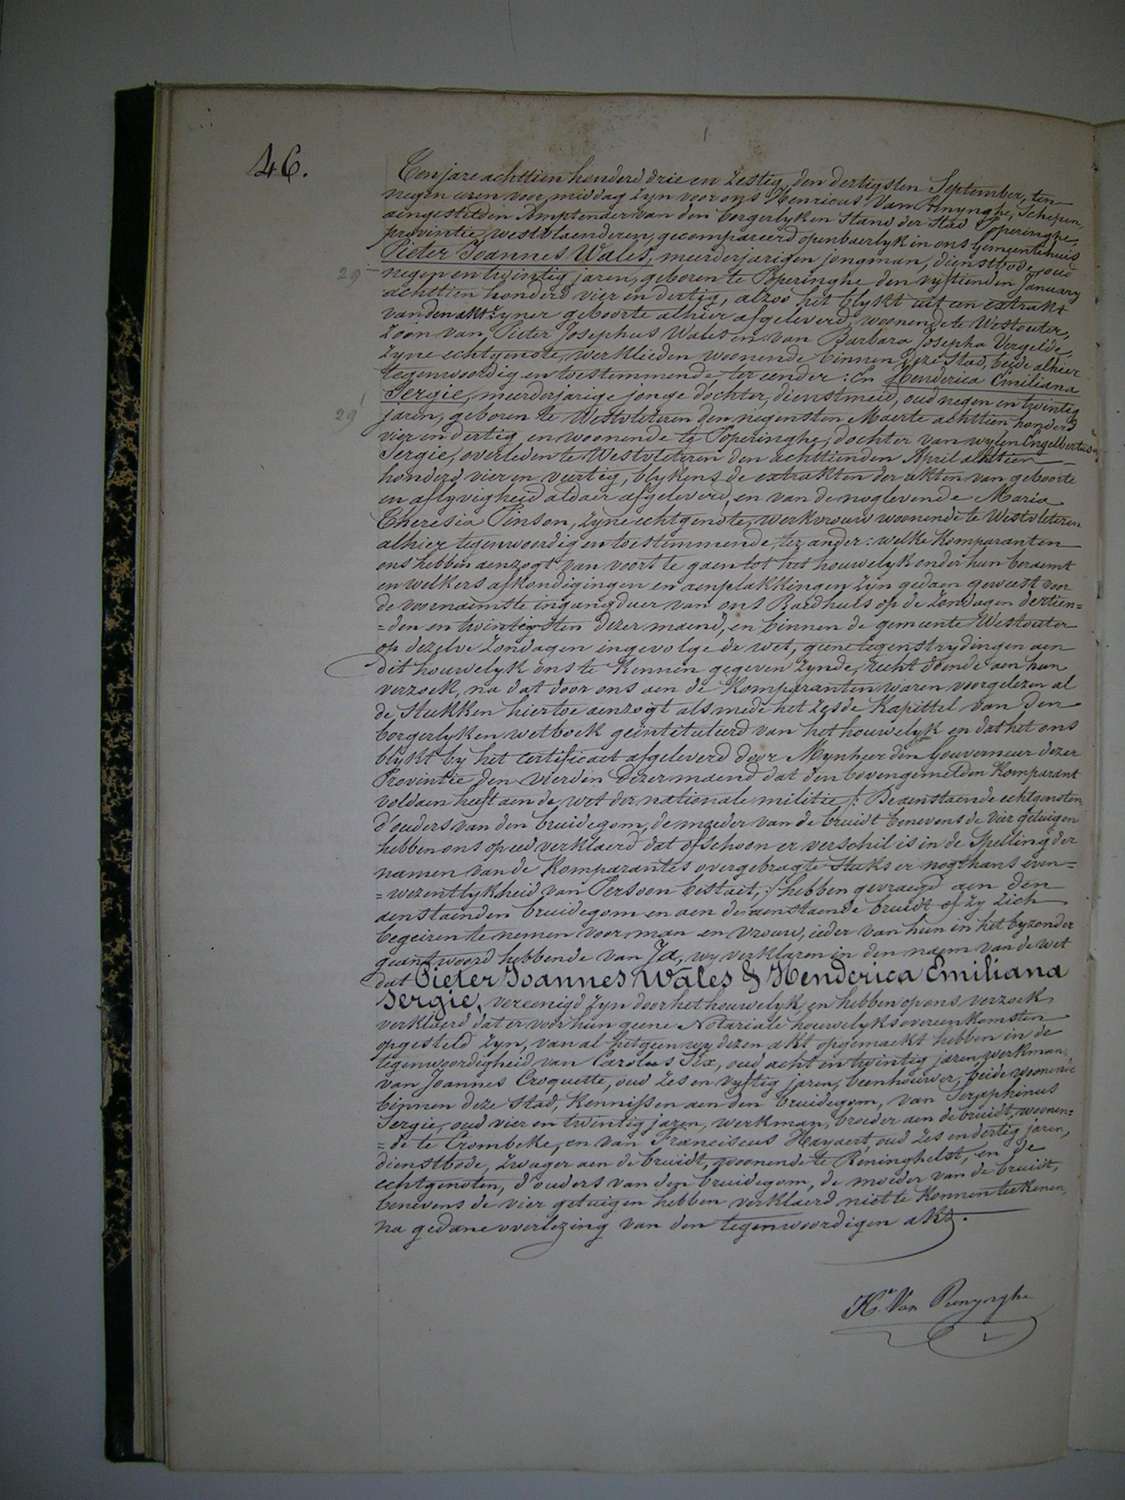 46.
Ten jare achttien honderd drie en zestig, den dertigsten September, ten
negen uren voor middag zyn voor ons Henricus Van Renynghe, Schepen,
aengestelden Amptenaer van den borgerlyken Stand der Stad Poperinghe,
provintie westvlaenderen, gecompareerd openbaerlyk in ons Gemeentehuis
Pieter Joannes Wales, meerderjarigen jongman, dienstbode, oud
29
negen en twintig jaren, geboren te Poperinghe den vyftienden January
achttien honderd vier en dertig, alzoo het blykt uit een extrakt
van den akt zyner geboorte alhier afgeleverd, woonende te Westouter,
Zoon van Pieter Josephus Wales en van Barbara Josepha Vergelde,
zyne echtgenote, werklieden woonende binnen deze Stad, beide alhier
tegenwoordig en toestemmende ter eender: En Henderica Emiliana
Sergie, meerderjarige jonge dochter, dienstmeid, oud negen en twintig
29
jaren, geboren te Westvleteren den negensten Maerte achttien honderd
vier en dertig, en woonende te Poperinghe, dochter van wylen Engelbertus
Sergie, overleden te Westvleteren den achttienden April achttien
honderd vier en veertig, blykens de extrakten der akten van geboorte
en aflyvigheid aldaer afgeleverd, en van de noglevende Maria
Theresia Pinson, zyne echtgenote, werkvrouw woonende te Westvleteren
alhier tegenwoordig en toestemmende, ter ander: welke Komparanten
ons hebben aenzogt van voort te gaen tot het houwelyk onder hun beraemt
en welkers afkondigingen en aenplakkingen zyn gedaen geweest voor
de voornaemste ingangduer van ons Raedhuis op de zondagen dertien=
=den en twintigsten dezer maend, en binnen de gemeente Westouter
op dezelve zondagen ingevolge de wet, geene tegenstrydingen aen
dit houwelyk ons te kennen gegeven zynde, recht doende aen hun
verzoek, na dat door ons aen de Komparanten waren voorgelezen al
de Stukken hiertoe aenzogt als mede het zesde Kapittel van den
borgerlyken wetboek geïntituleerd van het houwelyk en dat het ons
blykt by het certificaet afgeleverd door Mynheer den Gouverneur dezer
Provintie den vierden dezer maend dat den bovengemelden Komparant
voldaen heeft aen de wet der nationale militie /: De aenstaende echtgenoten,
d'ouders van den bruidegom, de moeder van de bruidt benevens de vier getuigen
hebben ons op eed verklaerd dat ofschoon er verschil is in de Spelling der
namen van de Komparantes overgebragte Stuks er nogthans even=
=wezentlykheid van Persoon bestait, :/ hebben gevraegd aen den
aenstaenden bruidegom en aen de aenstaende bruidt of zy zich
begeiren te nemen voor man en vrouw, ieder van hun in het byzonder
geäntwoord hebbende van Ja, wy verklaren in den naem van de wet
dat Pieter Joannes Wales & Henderica Emiliana
Sergie, vereenigd zyn door het houwelyk en hebben op ons verzoek
verklaerd dat er voor hun geene Notariale houwelyks overeenkomsten
opgesteld zyn, van al hetgeen wy dezen akt opgemaekt hebben in de
tegenwoordigheid van Carolus Six, oud acht en twintig jaren, werkman,
van Joannes Croquette, oud zes en vyftig jaren, beenhouwer, beide woonende
binnen deze Stad, Kennissen aen den bruidegom, van Seraphinus
Sergie, oud vier en twintig jaren, werkman, broeder aen de bruidt, woonen=
=de te Crombeke, en van Franciscus Hayaert, oud zes en dertig jaren,
dienstbode, zwager aen de bruidt, woonende te Reninghelst, en de
echtgenoten, d'ouders van den bruidegom, de moeder van de bruidt,
benevens de vier getuigen hebben verklaerd niet te konnen teekenen,
na gedane overlezing van den tegenwoordigen akt.
He Van Renynghe